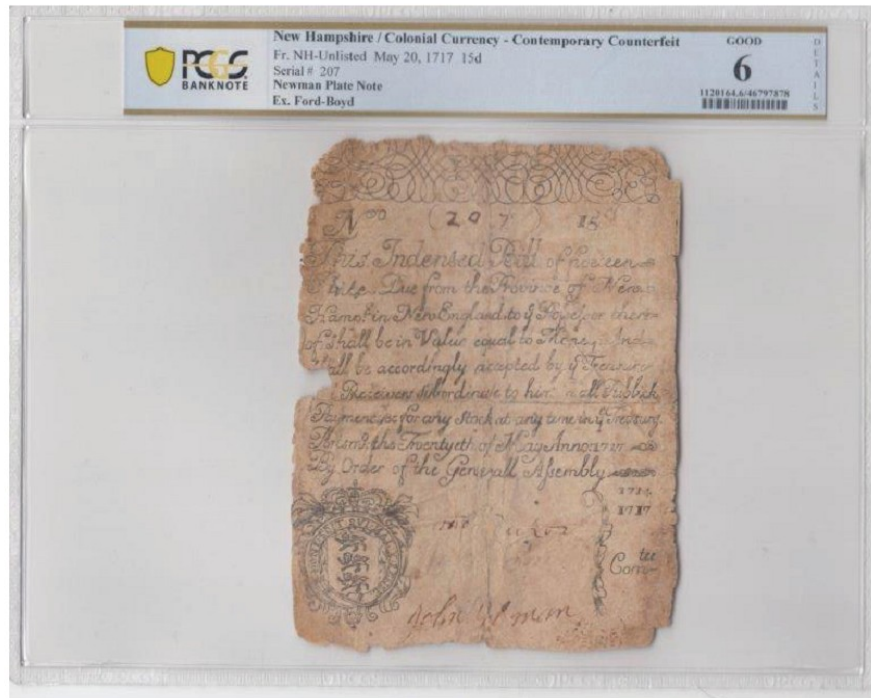 New Hampshire / Colonial Currency - Contemporary Counterfeit
Fr. NH-Unlisted May 20, 1717 15d
Serial # 207
Newman Plate Note
Ex. Ford-Boyd
PCGS
BANKNOTE
GOOD
6
1120164.6/46797878
DETAILS
No (207) 15d
This Indented Bill of
Due from the Province of New
Hampr in New England to ye Posesser there
of Shall be in Value equal to Money And
shall be accordingly accepted by ye Treasurer
Receivers Subordinate to him in all Publick
Payments for any Stock at any time in ye Treasury
the Twentyeth of May Anno 1717
By Order of the Generall Assembly
1714
1717
Comtee
John